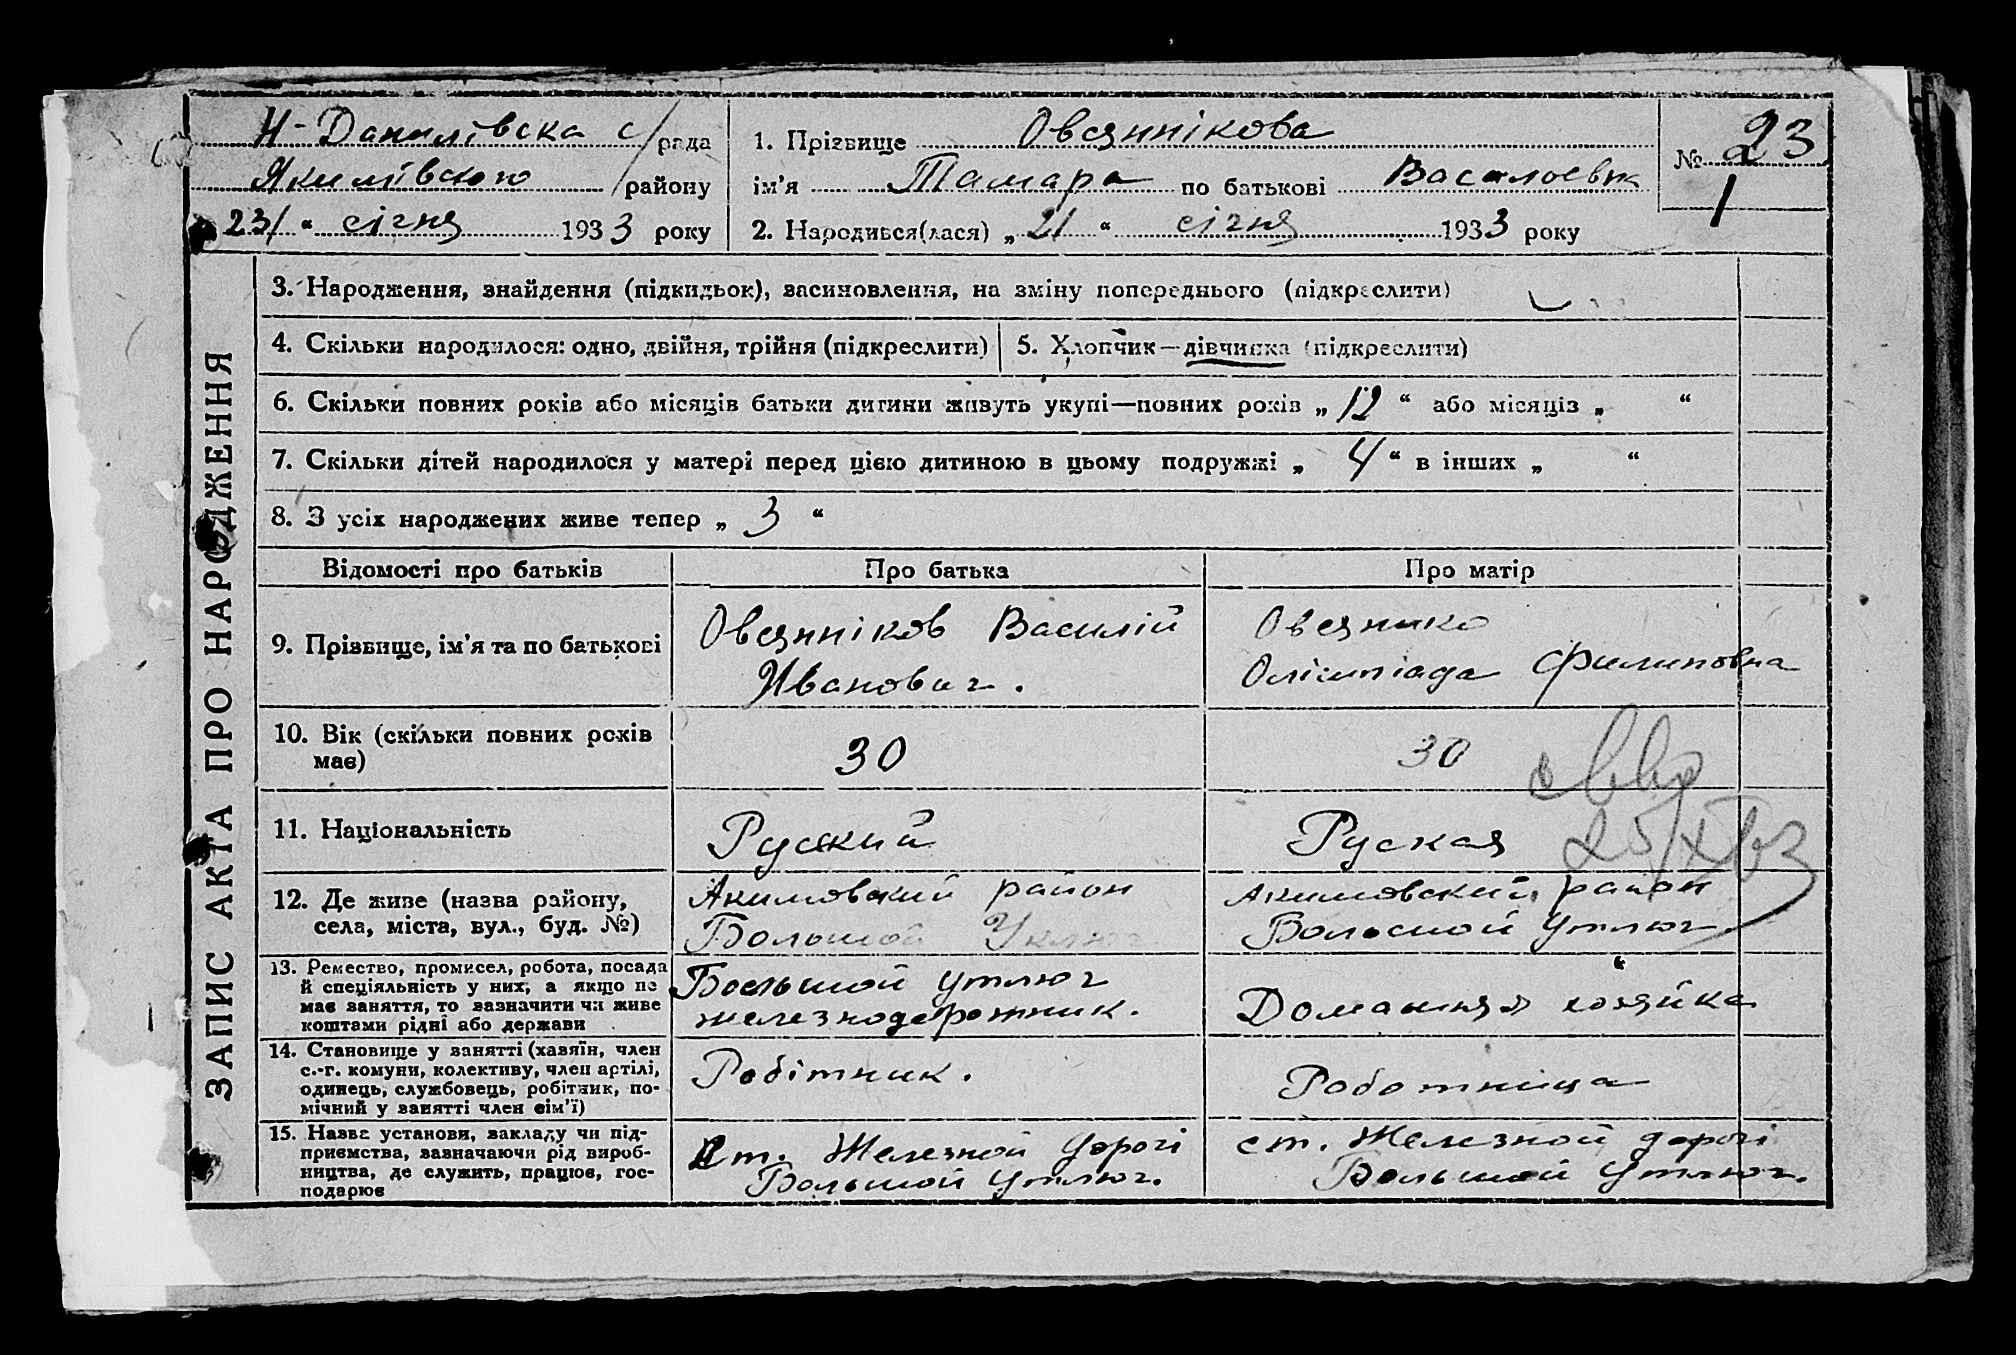 Н-Данилівска с/рада
Якимівского району
23/ “ січня 1933 року
1. Прізвище Овсяннікова
ім’я Тамара по батькові Василоевна
2. Народився(лася) „ 21 “ січня 1933 року
№ 23
1
ЗАПИС АКТА ПРО НАРОДЖЕННЯ
3. Народження, знайдення (підкидьок), васиновлення, на зміну попереднього (підкреслити)
4. Скільки народилося: одно, двійня, трійня (підкреслити)
5. Хлопчик—дівчинка (підкреслити)
6. Скільки повних років або місяців батьки дитини живуть укупі—повних років „ 12 “ або місяців „ “
7. Скільки дітей народилося у матері перед цією дитиною в цьому подружжі „ 4 “ в інших „ “
8. З усіх народжених живе тепер „ 3 “
Відомості про батьків
Про батька
Про матір
9. Прізвище, ім’я та по батькові
Овсянніков Василій
Иванович.
Овсянико
Олімпіада Филиповна
10. Вік (скільки повних років
має)
30
30
11. Національність
Руский
Руская
12. Де живе (назва району,
села, міста, вул., буд. №)
Акимовский район
Большой Утлюг
Акимовский район
Большой Утлюг
13. Ремество, промисел, робота, посада
й спеціяльність у них, а якщо не
має заняття, то зазначити чи живе
коштами рідні або держави
Боельшой Утлюг
железнодорожник.
Домашняя хозяйка
14. Становище у занятті (хазяїн, член
с.-г. комуни, колективу, член артілі,
одинець, службовець, робітник, по-
мічний у занятті член сім’ї)
Робітник.
Роботница
15. Назва установи, закладу чи під-
приємства, зазначаючи рід вироб-
ництва, де служить, працює, гос-
подарює
Ст. Железной дорогі
Большой Утлюг.
ст. Железной дорогі
Большой Утлюг.